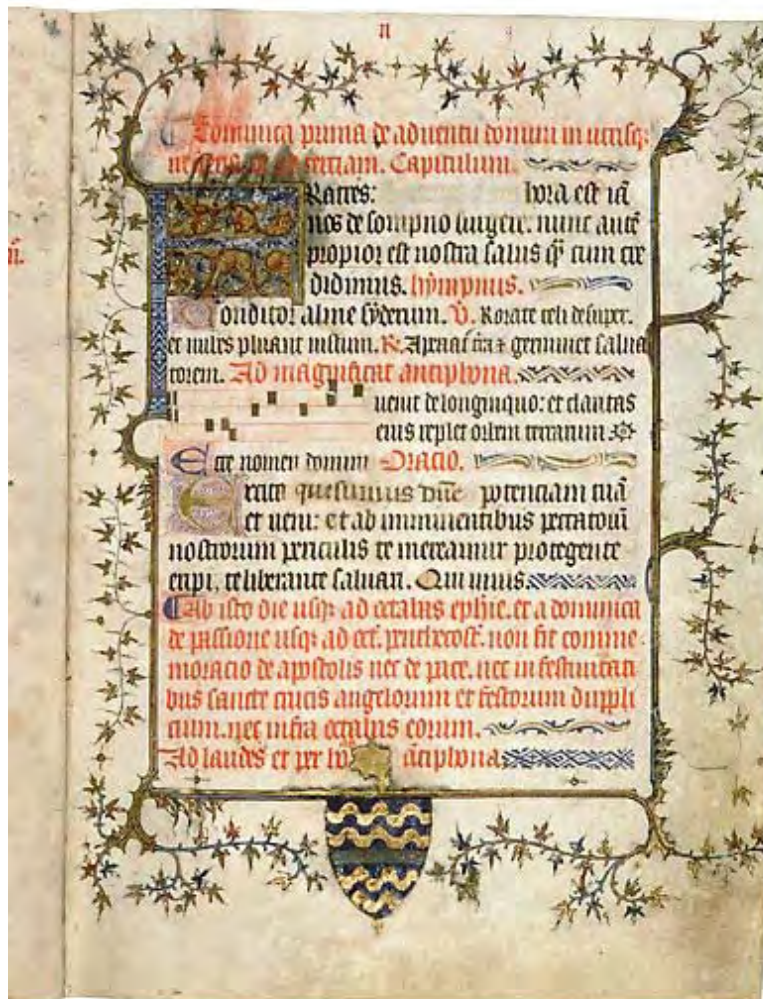 II
Dominica prima de adventu domini in utrisq;
tertiam. Capitulum.
Ratres: hora est iā
nos de sompno surgere. nunc autē
propior est nostra salus q̄ȝ cum cre
didimus. hympnus.
Conditor alme syderum. V. Rorate celi desuper.
et nubes pluant iustum. R. Aperiat̄ t̄ra ⁊ germinet salua
torem. Ad magnificat antiphona.
uenit de longinquo: et claritas
eius replet orbem terrarum
Ecce nomen domini Oracio.
Excita quesumus dn̄e potenciam tuā
et ueni: et ab imminentibus peccatorū
nostrorum periculis te mereamur protegente
eripi, te liberante saluari. Qui uiuis.
Ab isto die usq; ad octabas ephie. et a dominica
de passione usq; ad oct̄. penthecost̄. non fit comme
moracio de apostolis nec de pace. nec in festiuitati
bus sancte crucis angelorum et festorum dupli
cium. nec infra octabas eorum.
Ad laudes et per ho āntiphona